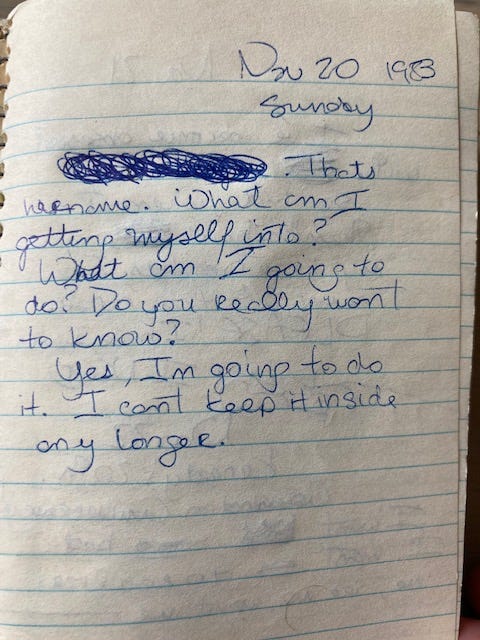 Nov 20 1983
Sunday
. Thats
her name. What am I
getting myself into?
What am I going to
do? Do you really want
to know?
Yes, Im going to do
it. I cant keep it inside
any longer.